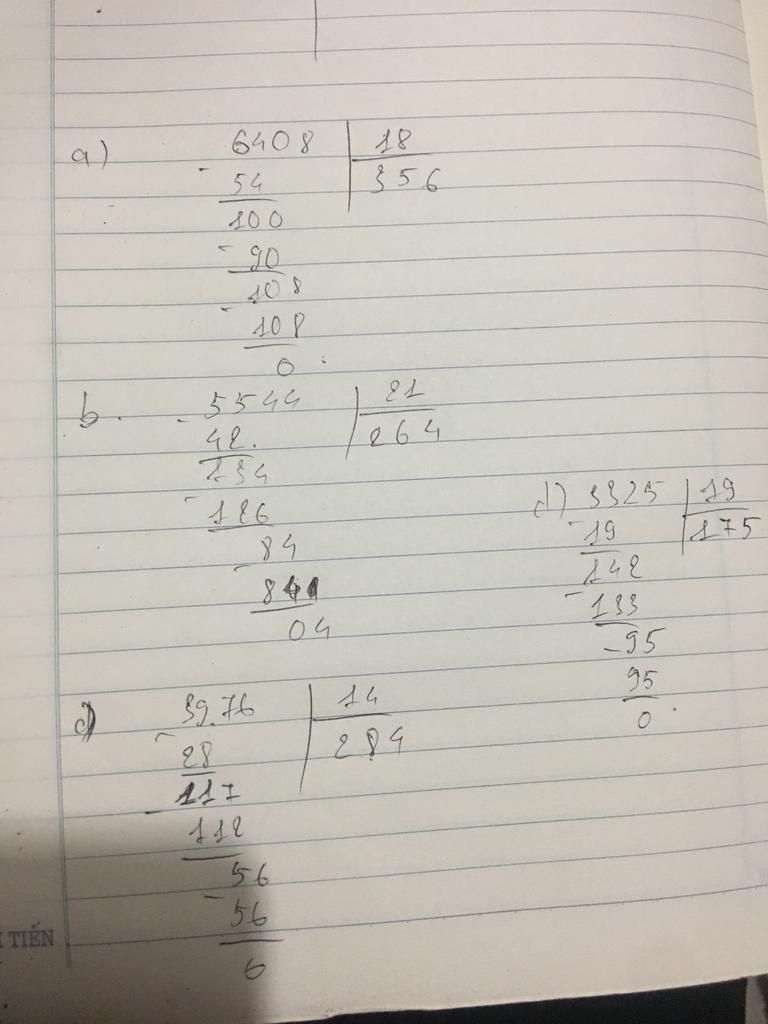 a) 6408 18
- 54 356
100
- 90
108
- 108
0
b. - 5544 21
42. 264
134
- 126
84
- 84
04
d) 3325 19
- 19 175
142
- 133
- 95
95
0
c) 3976 14
- 28 284
117
- 112
56
- 56
0
TIẾN